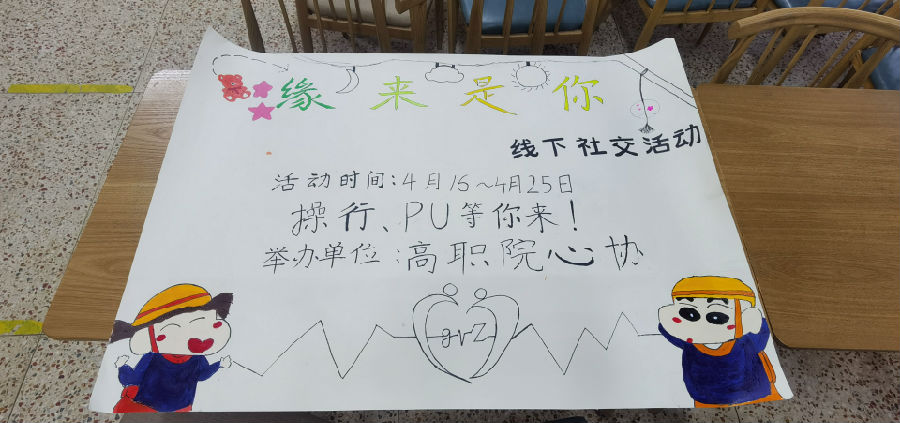 缘来是你
线下社交活动
活动时间：4月16～4月25日
操行、PU等你来！
举办单位：高职院心协
grZ